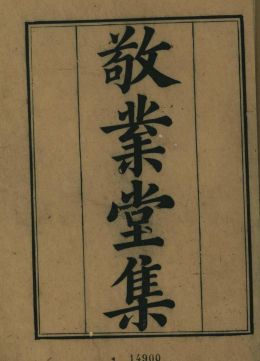 敬業堂集
14900